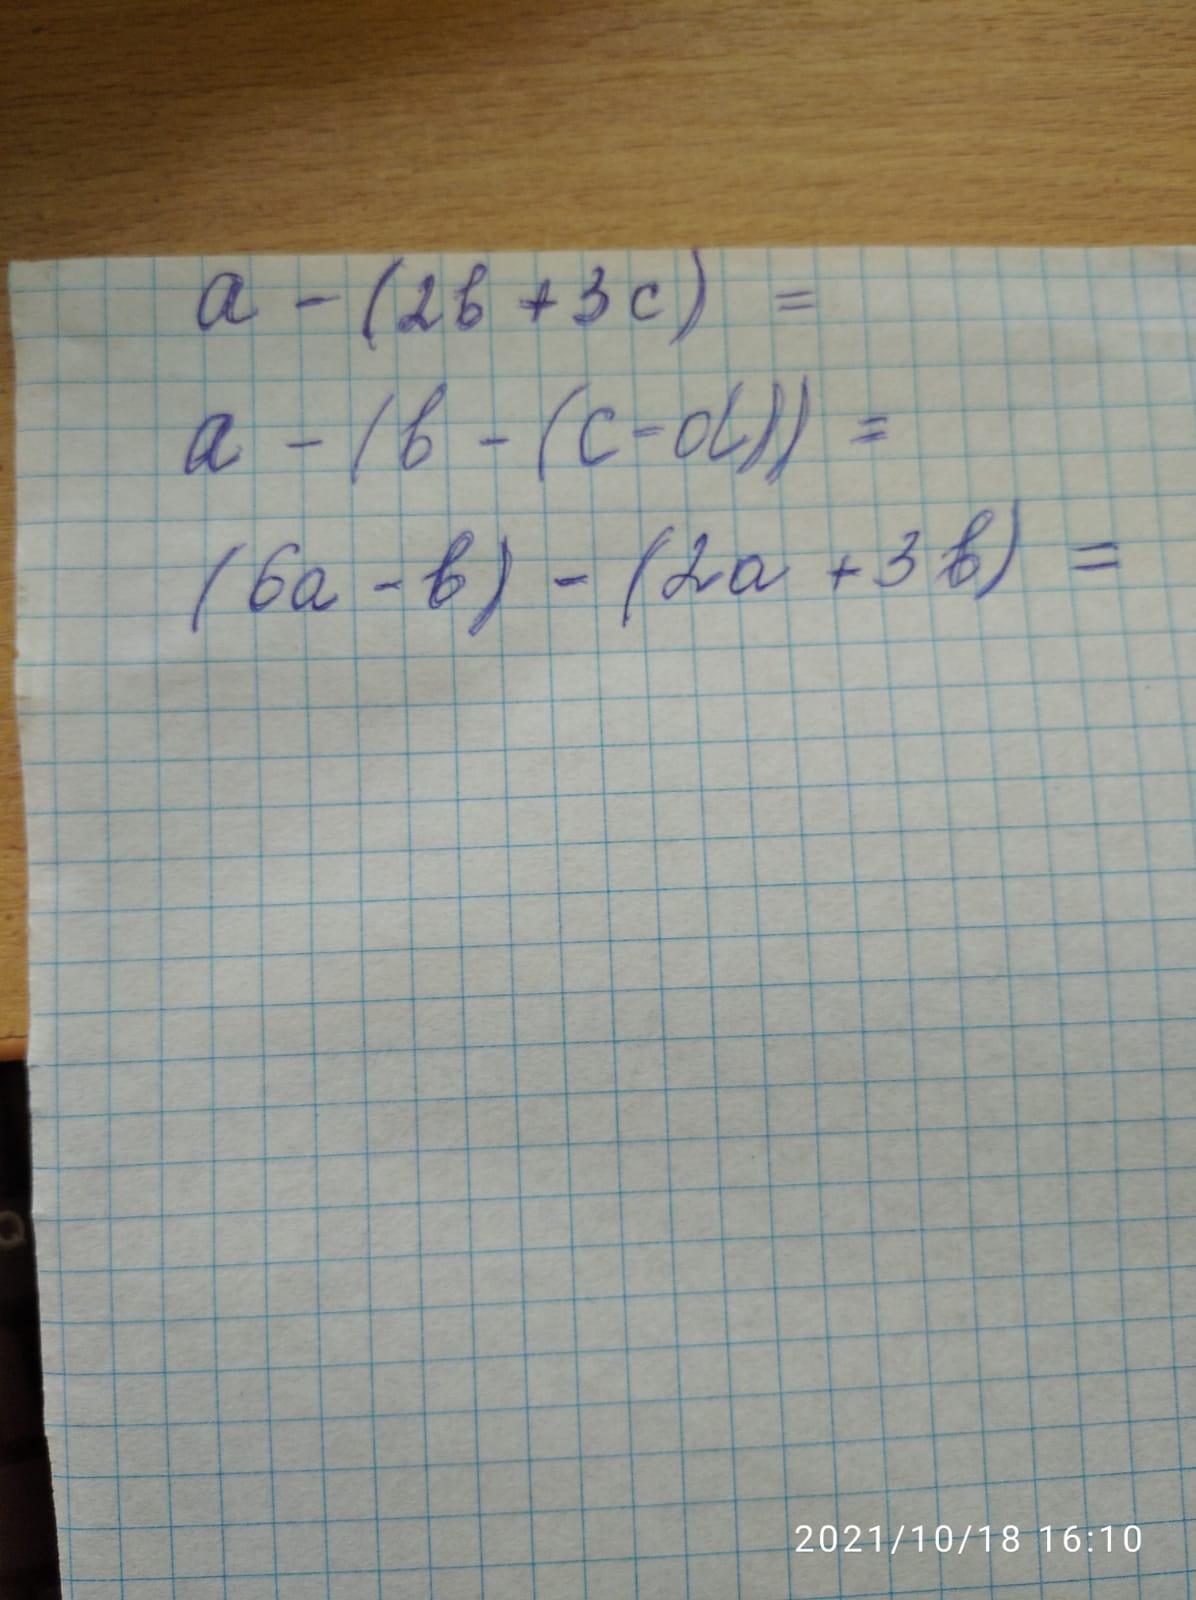 a - (2b + 3c) =
a - (b - (c - d)) =
(6a - b) - (2a + 3b) =
2021/10/18 16:10